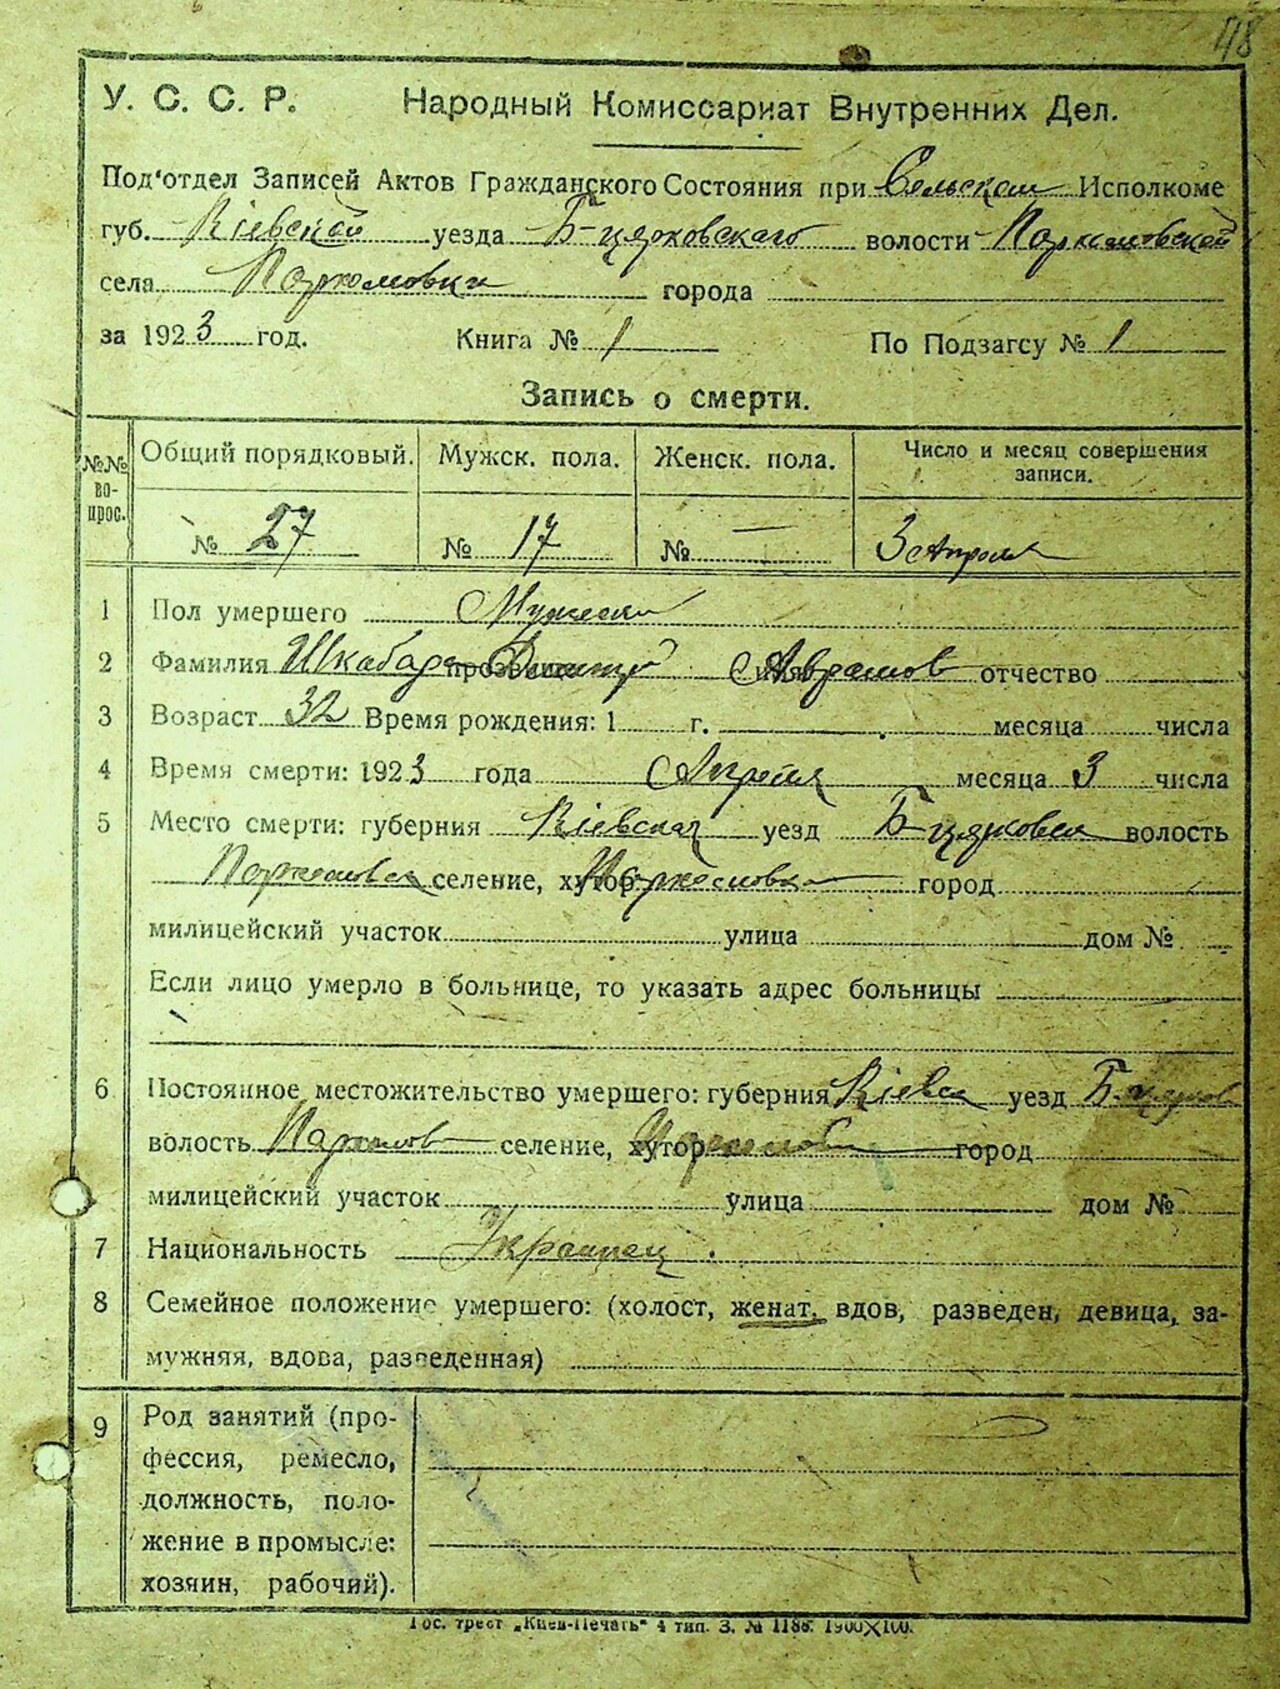 48
У. С. С. Р. Народный Комиссариат Внутренних Дел.
Под'отдел Записей Актов Гражданского Состояния при Сельском Исполкоме
губ. Кіевской уезда Б-церковскаго волости Пархомовской
села Пархомовки города
за 1923 год. Книга № 1 По Подзагсу № 1
Запись о смерти.
№№ вопрос. Общий порядковый. Мужск. пола. Женск. пола. Число и месяц совершения записи.
№ 27 № 17 № — 3 Апреля
1 Пол умершего Мужеск
2 Фамилия Шкабара прозвище Дмитр имя Аврамов отчество
3 Возраст 32 Время рождения: 1 г. месяца числа
4 Время смерти: 1923 года Апреля месяца 3 числа
5 Место смерти: губерния Кіевская уезд Б-церковск волость
Пархомовск селение, хутор Пархомовка город
милицейский участок улица дом №
Если лицо умерло в больнице, то указать адрес больницы
6 Постоянное местожительство умершего: губерния Кіевск уезд Б-церков
волость Пархомов селение, хутор Пархомовк город
милицейский участок улица дом №
7 Национальность Украинец.
8 Семейное положение умершего: (холост, женат, вдов, разведен, девица, за-
мужняя, вдова, разведенная)
9 Род занятий (про-
фессия, ремесло,
должность, поло-
жение в промысле:
хозяин, рабочий).
Гос. трест „Киев-Печать" 4 тип. З. № 1186. 1900X100.